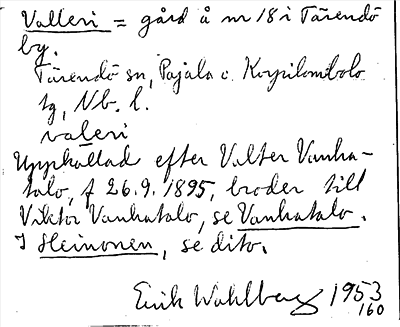 Valleri = gård å nr 18 i Tärendö
by.
Tärendö sn, Pajala o. Korpilombolo
tg, Nb. l.
valeri
Uppkallad efter Valter Vanha-
talo, f 26.9.1895, broder till
Viktor Vanhatalo, se Vanhatalo.
I Heinonen, se dito.
Erik Wahlberg 1953
160